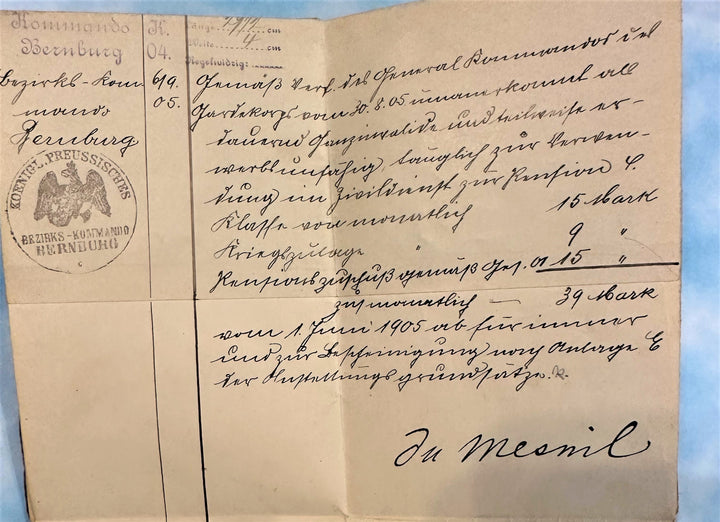 Kommando
Bernburg
K.
04.
Länge
cm
Weite 4 cm
Regelwidrig:
Bezirks-Kom-
mando
Bernburg
6/9.
05.
KOENIGL. PREUSSISCHES
BEZIRKS-KOMMANDO
BERNBURG
Gemäß Verf. des General Kommandos des
Gardekorps vom 30.8.05 anerkannt als
dauernd Ganzinvalide und teilweise er-
werbsunfähig, tauglich zur Verwen-
dung im Zivildienst zur Pension 4.
Klasse von monatlich 15 Mark
Kriegszulage " 9 "
Pensionszuschuß gemäß Ges. 01 15 "
zus. monatlich — 39 Mark
vom 1. Juni 1905 ab für immer
und zur Bescheinigung nach Anlage E
der Anstellungsgrundsätze.
du Mesnil